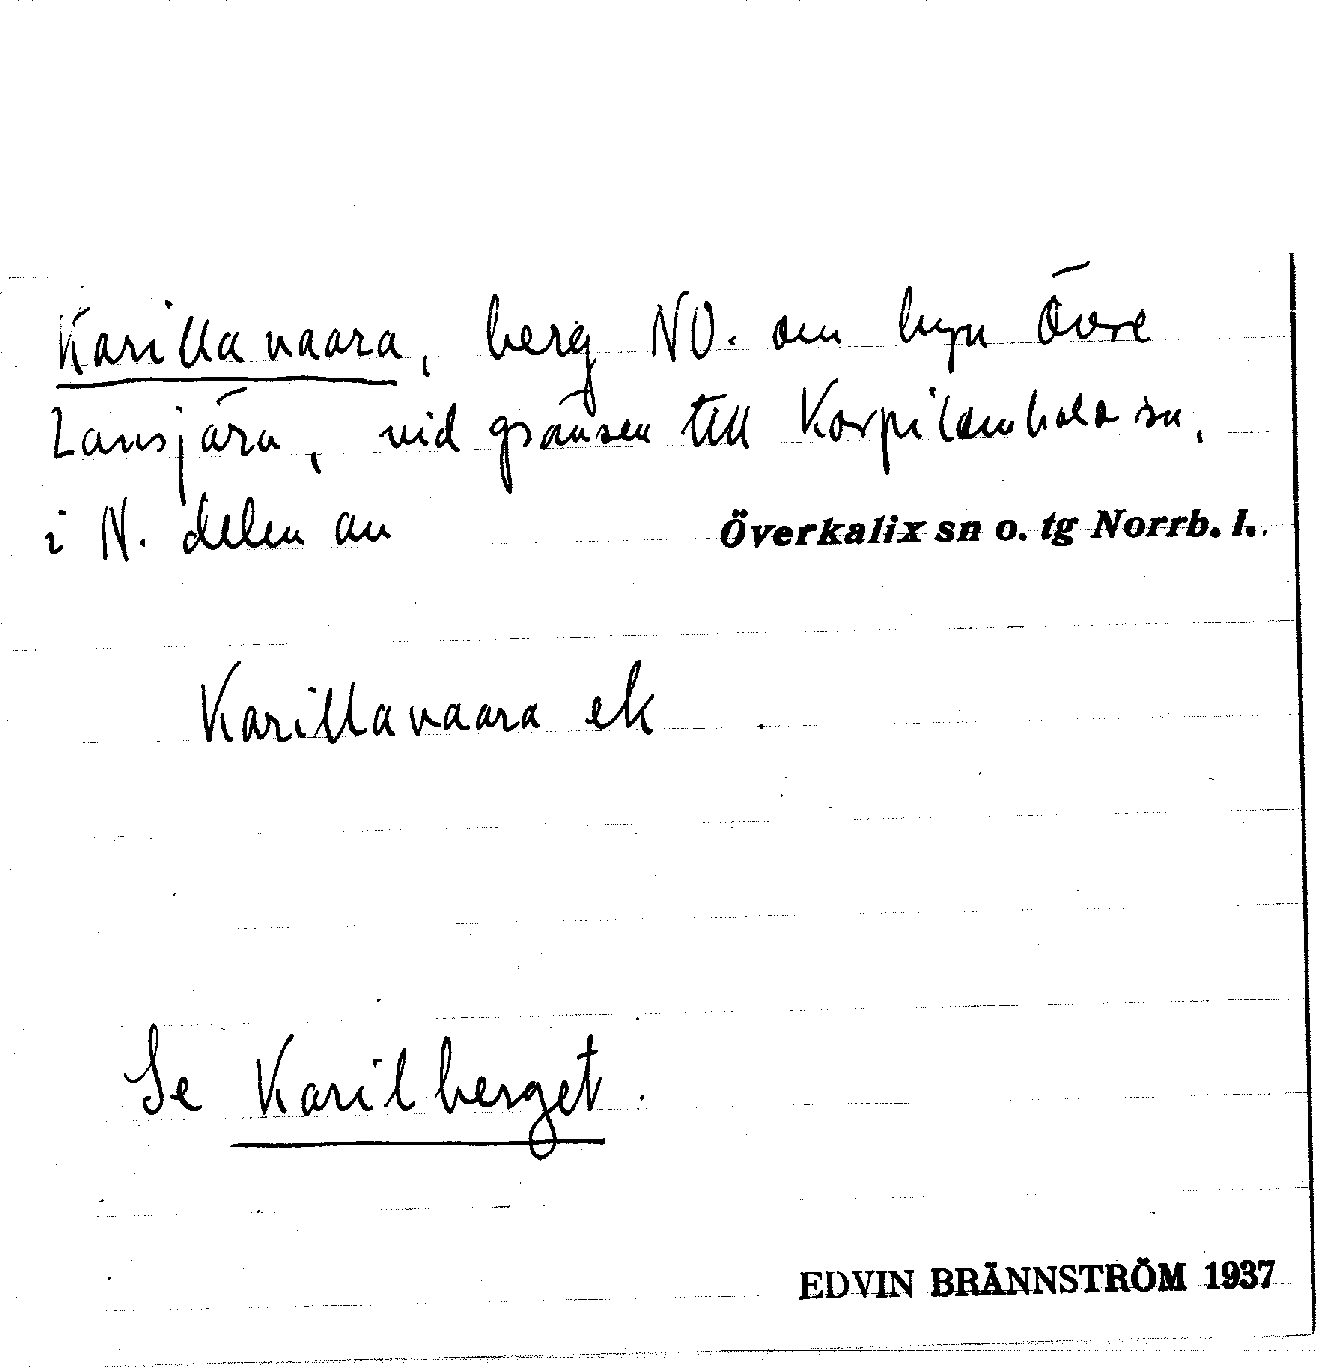 Karillavaara, berg NO. om byn Övre
Lansjärv, vid gränsen till Korpilombolo sn,
i N. delen av Överkalix sn o. tg Norrb. l.
Karillavaara ek
Se Karilberget.
EDVIN BRÄNNSTRÖM 1937